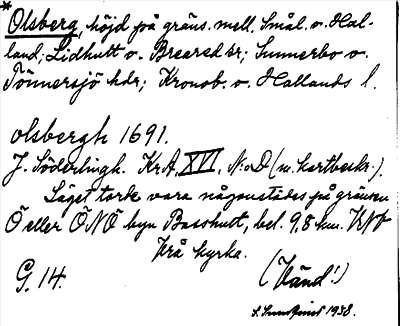 *Olsberg, höjd på gräns. mell. Smål. o. Hal-
land; Lidhult o. Breared sr; Sunnerbo o.
Tönnersjö hdr; Kronob. o. Hallands l.
olsbergh 1691.
J. Söderlingh. KrA, XVI, N:o D (m. kartbeskr.).
Läget torde vara någonstädes på gränsen
Ö eller ÖNÖ byn Basshult, bel. 9,8 km. VNV
Krå kyrka.
G. 14. (Vänd!)
S. Sundqvist 1938.